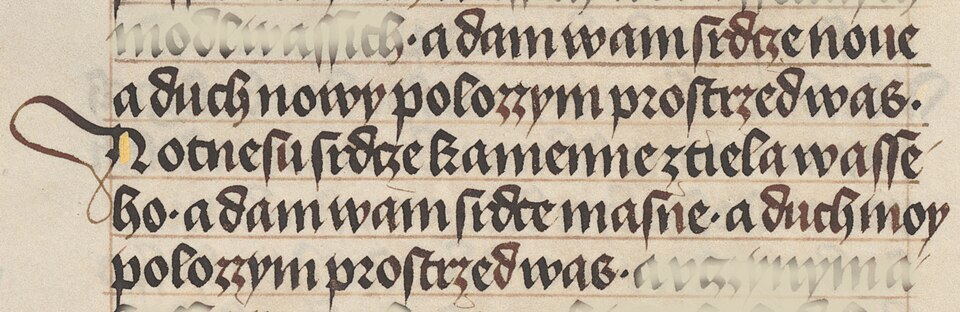 a dam wam srdcze noue
a duch nowy polozzym prostrzed was·
A otnesu srdcze kamenne z tiela wasse-
ho· a dam wam srdce masne· a duch moy
polozzym prostrzed was·